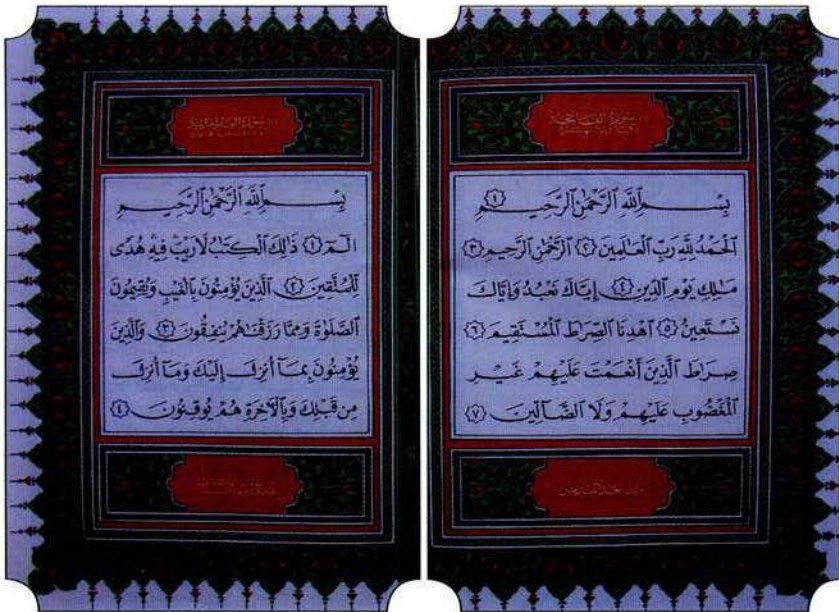 سُورَةُ الفَاتِحَةِ
بِسْمِ ٱللَّهِ ٱلرَّحْمَٰنِ ٱلرَّحِيمِ ١
ٱلْحَمْدُ لِلَّهِ رَبِّ ٱلْعَٰلَمِينَ ٢ ٱلرَّحْمَٰنِ ٱلرَّحِيمِ ٣
مَٰلِكِ يَوْمِ ٱلدِّينِ ٤ إِيَّاكَ نَعْبُدُ وَإِيَّاكَ
نَسْتَعِينُ ٥ ٱهْدِنَا ٱلصِّرَٰطَ ٱلْمُسْتَقِيمَ ٦
صِرَٰطَ ٱلَّذِينَ أَنْعَمْتَ عَلَيْهِمْ غَيْرِ
ٱلْمَغْضُوبِ عَلَيْهِمْ وَلَا ٱلضَّآلِّينَ ٧
سُورَةُ
بِسْمِ ٱللَّهِ ٱلرَّحْمَٰنِ ٱلرَّحِيمِ
الٓمٓ ١ ذَٰلِكَ ٱلْكِتَٰبُ لَا رَيْبَ فِيهِ هُدًى
لِّلْمُتَّقِينَ ٢ ٱلَّذِينَ يُؤْمِنُونَ بِٱلْغَيْبِ وَيُقِيمُونَ
ٱلصَّلَوٰةَ وَمِمَّا رَزَقْنَٰهُمْ يُنفِقُونَ ٣ وَٱلَّذِينَ
يُؤْمِنُونَ بِمَآ أُنزِلَ إِلَيْكَ وَمَآ أُنزِلَ
مِن قَبْلِكَ وَبِٱلْءَاخِرَةِ هُمْ يُوقِنُونَ ٤